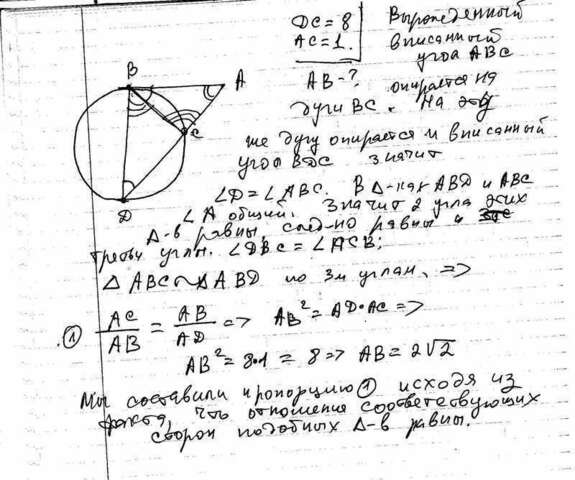 DC = 8
AC = 1.
AB - ?
Вырожденный
вписанный
угол ABC
опирается на
дуги BC. На эту
же дугу опирается и вписанный
угол BDC значит
∠D = ∠ABC. В Δ-как ABD и ABC
∠A общий. Значит 2 угла этих
Δ-в равны. след-но равны и
третьи углы. ∠DBC = ∠ACB;
Δ ABC ~ Δ ABD по 3м углам, =>
① AC/AB = AB/AD => AB² = AD·AC =>
AB² = 8·1 = 8 => AB = 2√2
Мы составили пропорцию ① исходя из
факта, что отношение соответствующих
сторон подобных Δ-в равны.
B
A
C
D